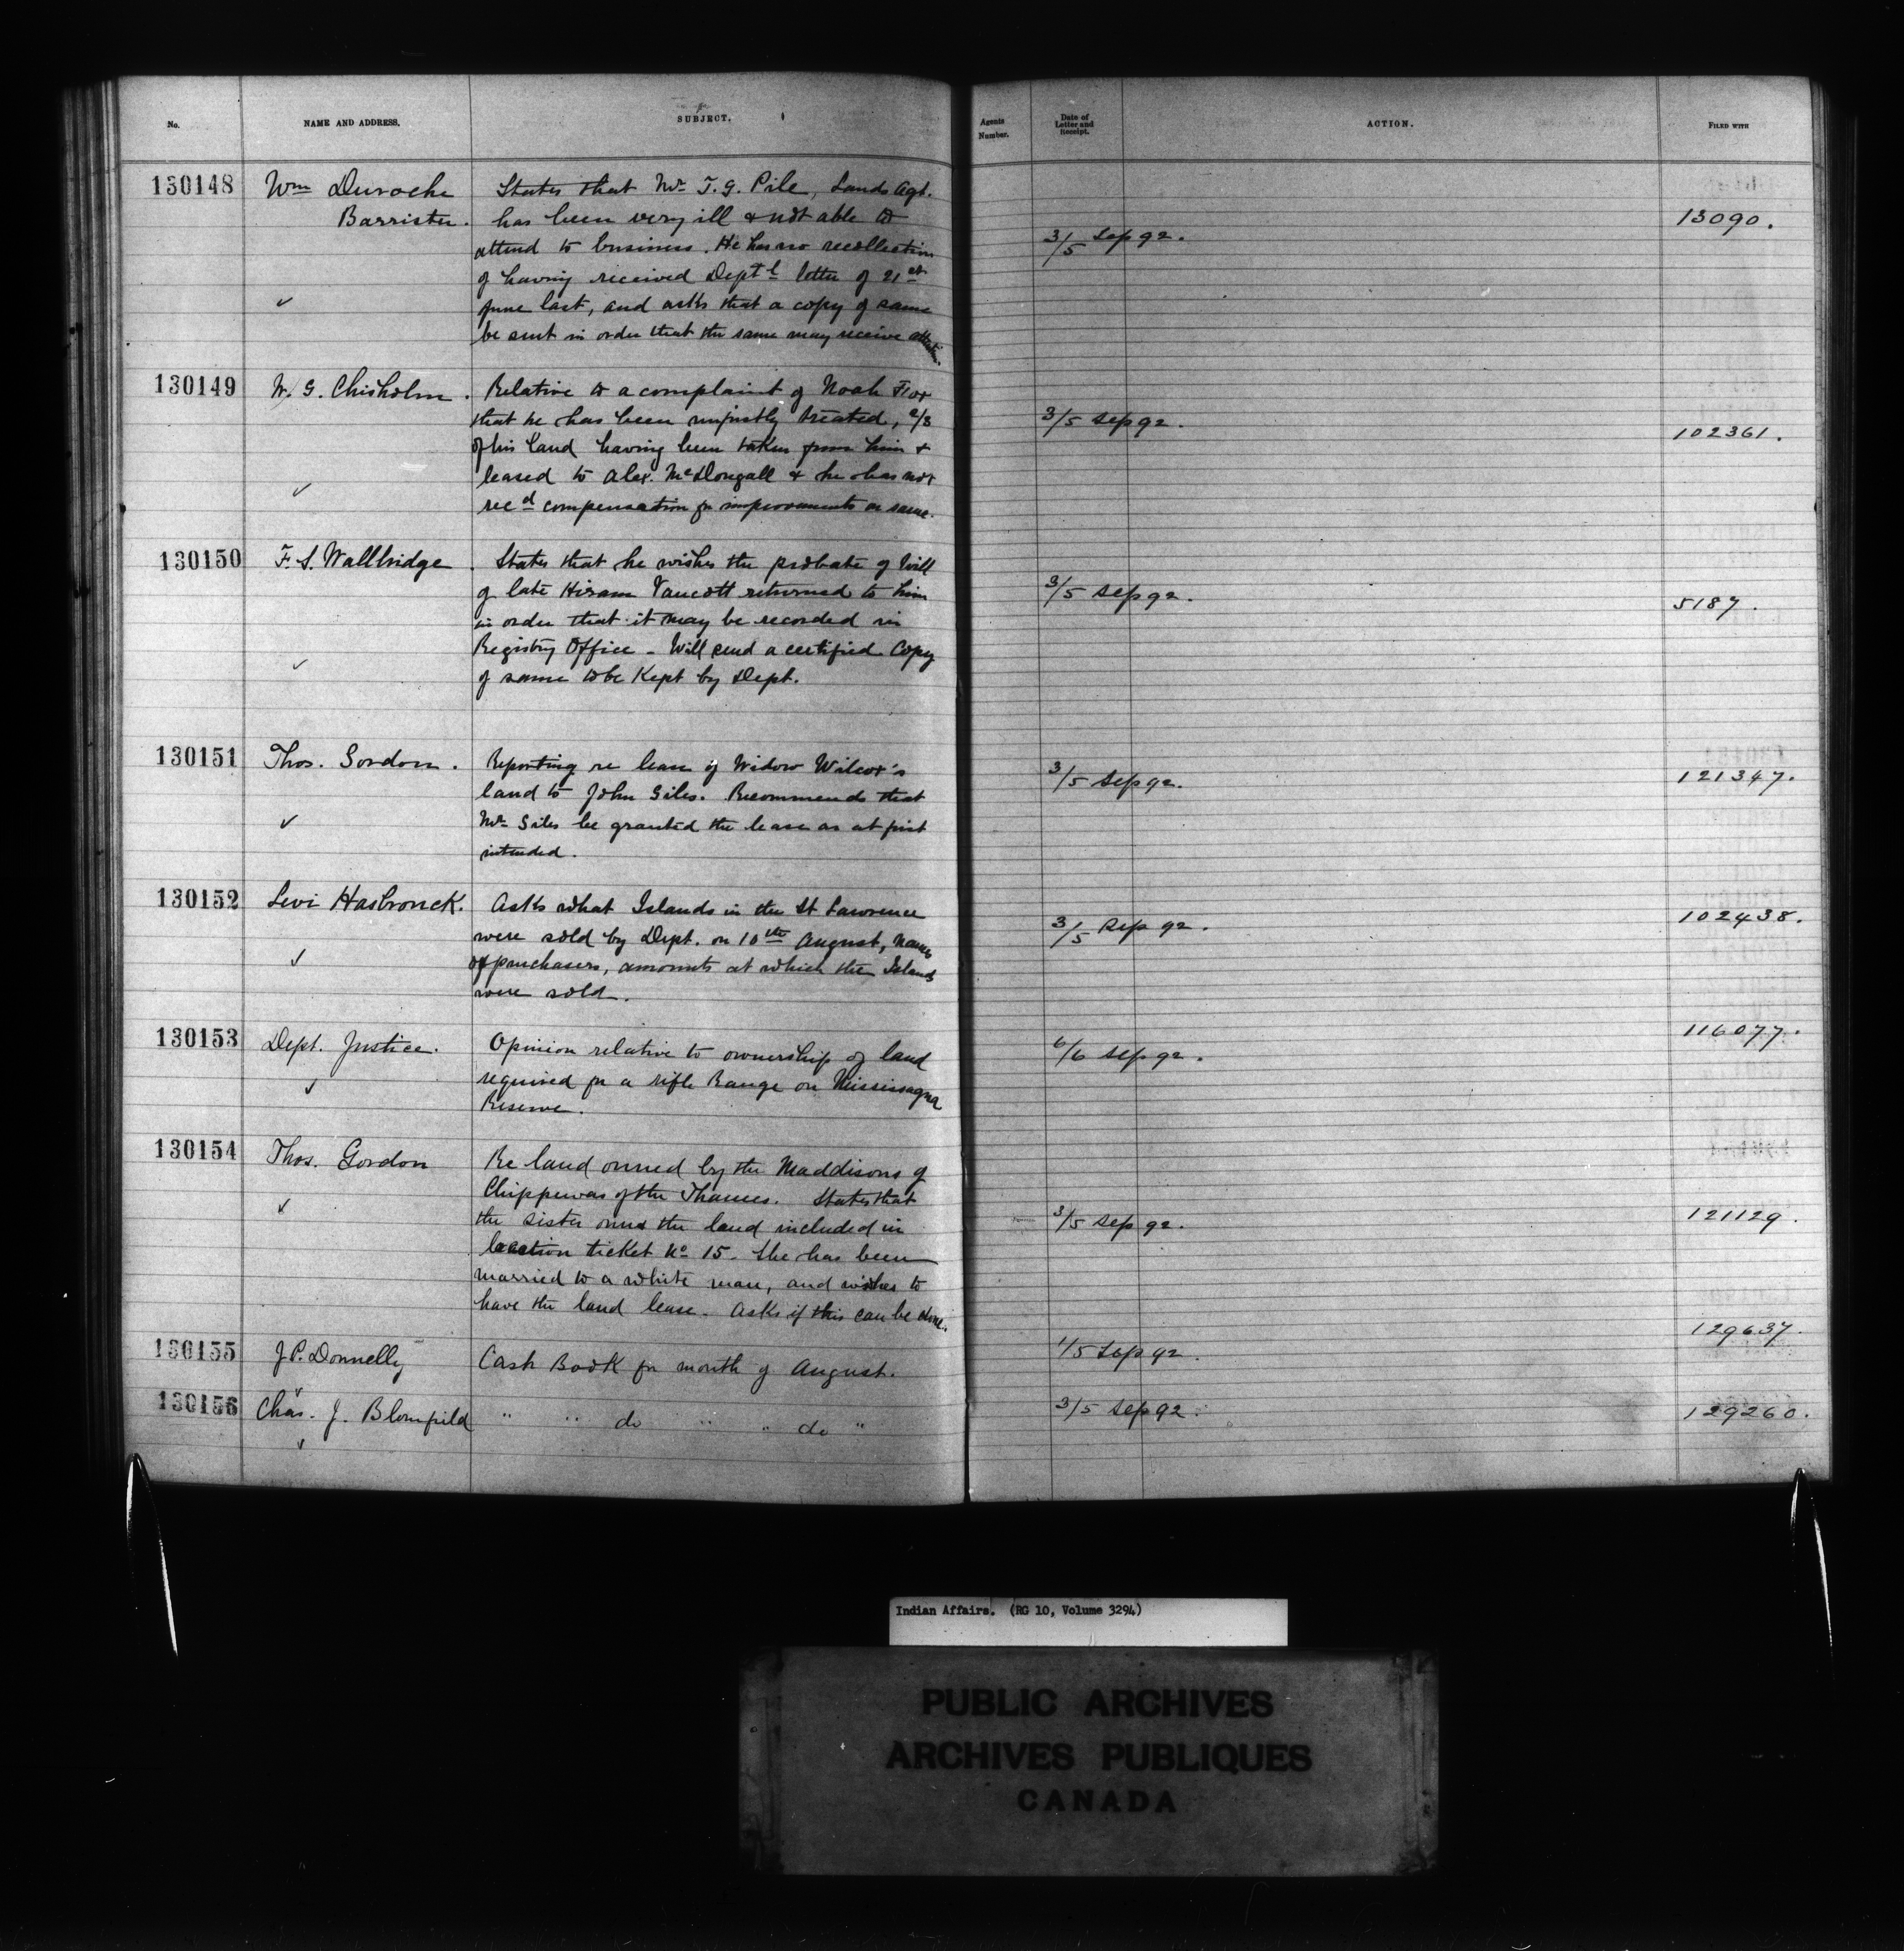 No. NAME AND ADDRESS. SUBJECT. Agents Number. Date of Letter and Receipt. ACTION. FILED WITH
130148 Wm Duroche States that Mr T. G. Pile, Lands Agt.
Barrister. has been very ill & not able to 13090.
attend to business. He has no recollection 3/5 Sep 92.
of having received Deptl letter of 21st
June last, and asks that a copy of same
be sent in order that the same may receive attention.
130149 W. G. Chisholm. Relative to a complaint of Noah Fox
that he has been unjustly treated, 2/3 3/5 Sep 92.
of his land having been taken from him & 102361.
leased to Alex. McDougall & he has not
recd compensation for improvements on same.
130150 F. S. Wallbridge. States that he wishes the probate of Will
of late Hiram Vancott returned to him 3/5 Sep 92. 5187.
in order that it may be recorded in
Registry Office - Will send a certified Copy
of same to be Kept by Dept.
130151 Thos. Gordon. Reporting re lease of Widow Wilcox's 3/5 Sep 92. 121347.
land to John Giles. Recommends that
Mr Giles be granted the lease as at first
intended.
130152 Levi Hasbrouck. Asks what Islands in the St Lawrence 102438.
were sold by Dept. on 10th August, names 3/5 Sep 92.
of purchasers, amounts at which the Islands
were sold.
130153 Dept. Justice. Opinion relative to ownership of land 6/6 Sep 92. 116077.
required for a rifle Range on Mississagua
Reserve.
130154 Thos. Gordon Re land owned by the Maddisons of
Chippewas of the Thames. States that
the sister owns the land included in 3/5 Sep 92. 121129.
location ticket No 15. She has been
married to a white man, and wishes to
have the land lease. Asks if this can be done.
130155 J. P. Donnelly Cash Book for month of August. 1/5 Sep 92. 129637.
130156 Chas. J. Blomfield " " do " " do " 3/5 Sep 92. 129260.
Indian Affairs. (RG 10, Volume 3294)
PUBLIC ARCHIVES
ARCHIVES PUBLIQUES
CANADA